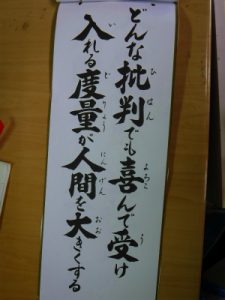 どんな批判でも喜んで受け
入れる度量が人間を大きくする